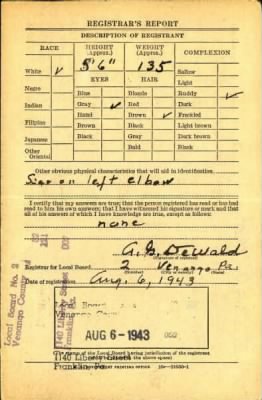 REGISTRAR'S REPORT
DESCRIPTION OF REGISTRANT
RACE HEIGHT (Approx.) WEIGHT (Approx.) COMPLEXION
5'6" 135
White ✓ EYES HAIR Sallow
Light
Negro Blue Blonde Ruddy ✓
Indian Gray ✓ Red Dark
Hazel Brown ✓ Freckled
Filipino Brown Black Light brown
Japanese Black Gray Dark brown
Other Oriental Bald Black
Other obvious physical characteristics that will aid in identification
Scar on left elbow
I certify that my answers are true; that the person registered has read or has had
read to him his own answers; that I have witnessed his signature or mark and that
all of his answers of which I have knowledge are true, except as follows:
none
A. G. DeWald
(Signature of registrar)
Registrar for Local Board 2 Venango Pa.
(Number) (City or county) (State)
Date of registration Aug. 6, 1943
Local Board No. 2
Venango County
Local Board
Venango Co
AUG 6 - 1943 002
(The stamp of the Local Board having jurisdiction of the registrant
1140 Liberty Street
Franklin, Pa.
PRINTING OFFICE